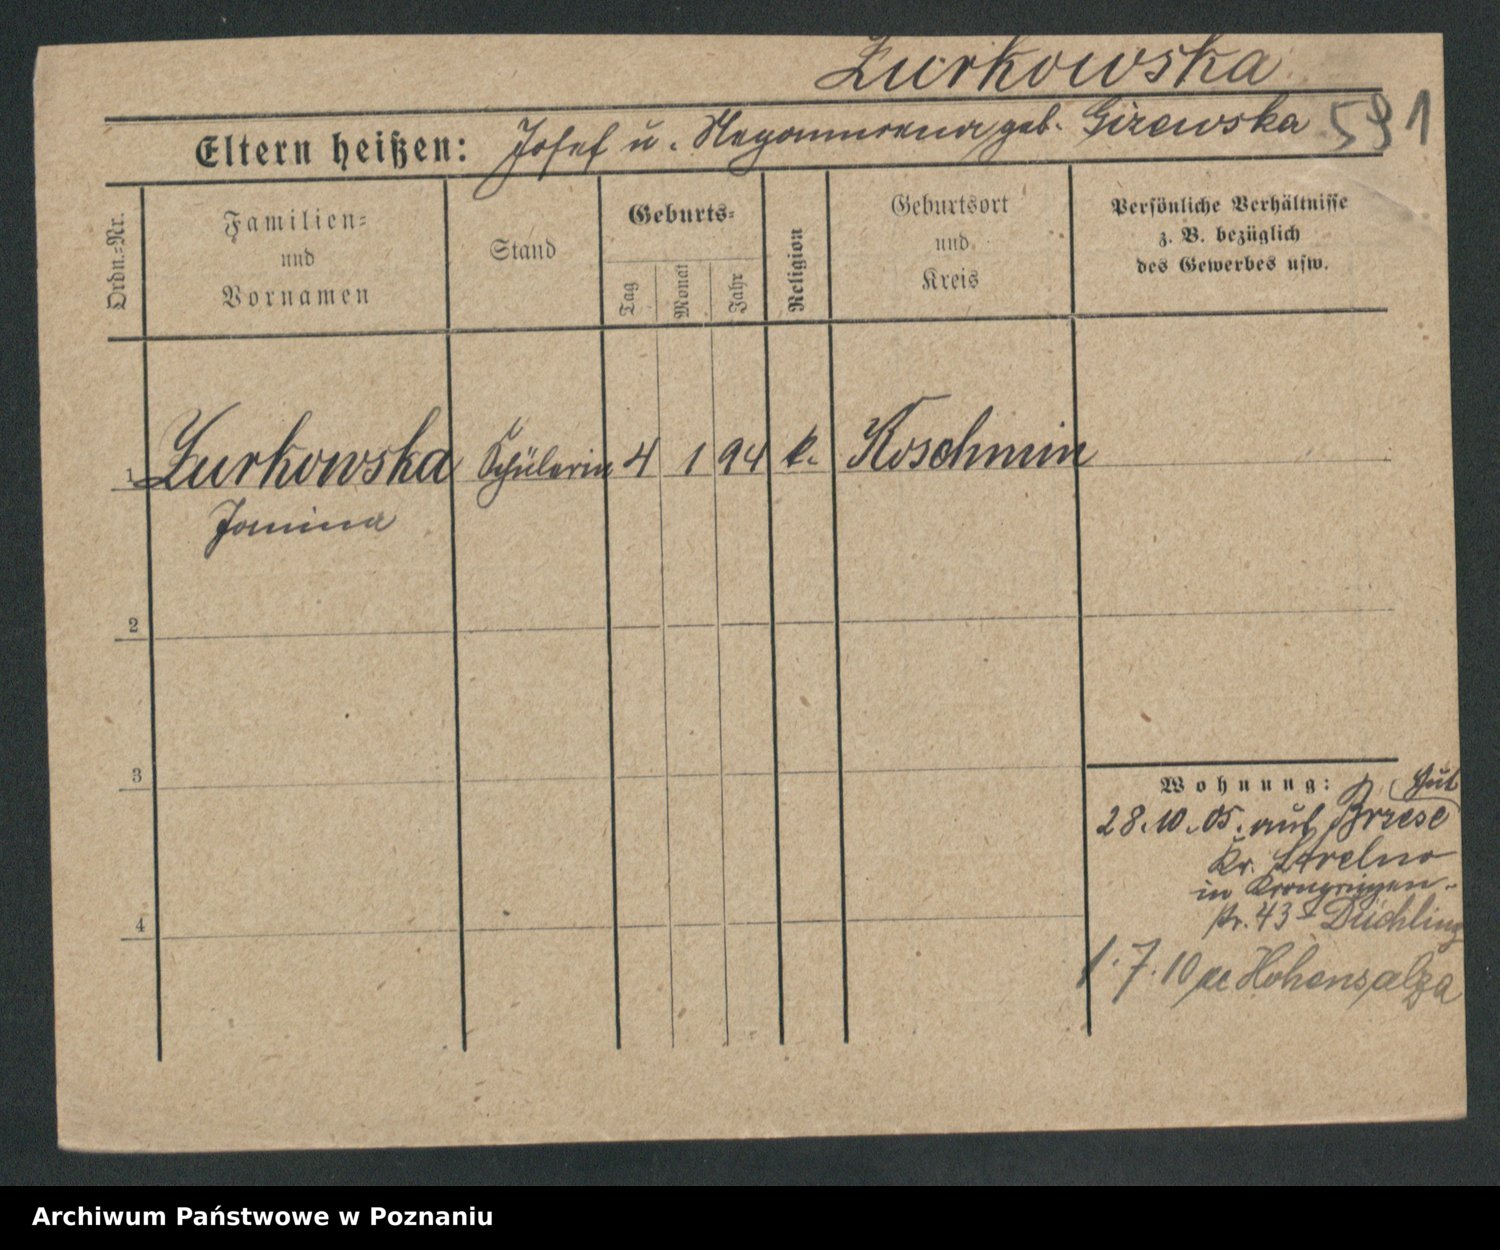 Zurkowska
Eltern heißen: Josef u. geb. Girewska 591
Ordn.-Nr.
Familien-
und
Vornamen
Stand
Geburts-
Tag
Monat
Jahr
Religion
Geburtsort
und
Kreis
Persönliche Verhältnisse
z. B. bezüglich
des Gewerbes usw.
1 Zurkowska Schülerin 4 1 94 k. Koschmin
Janina
2
3
4
Wohnung: Gut
28.10.05. auf Brzesc
Kr. Strelno
in Kronprinzen-
str. 43 - Düchling
1.7.10 Hohensalza
Archiwum Państwowe w Poznaniu